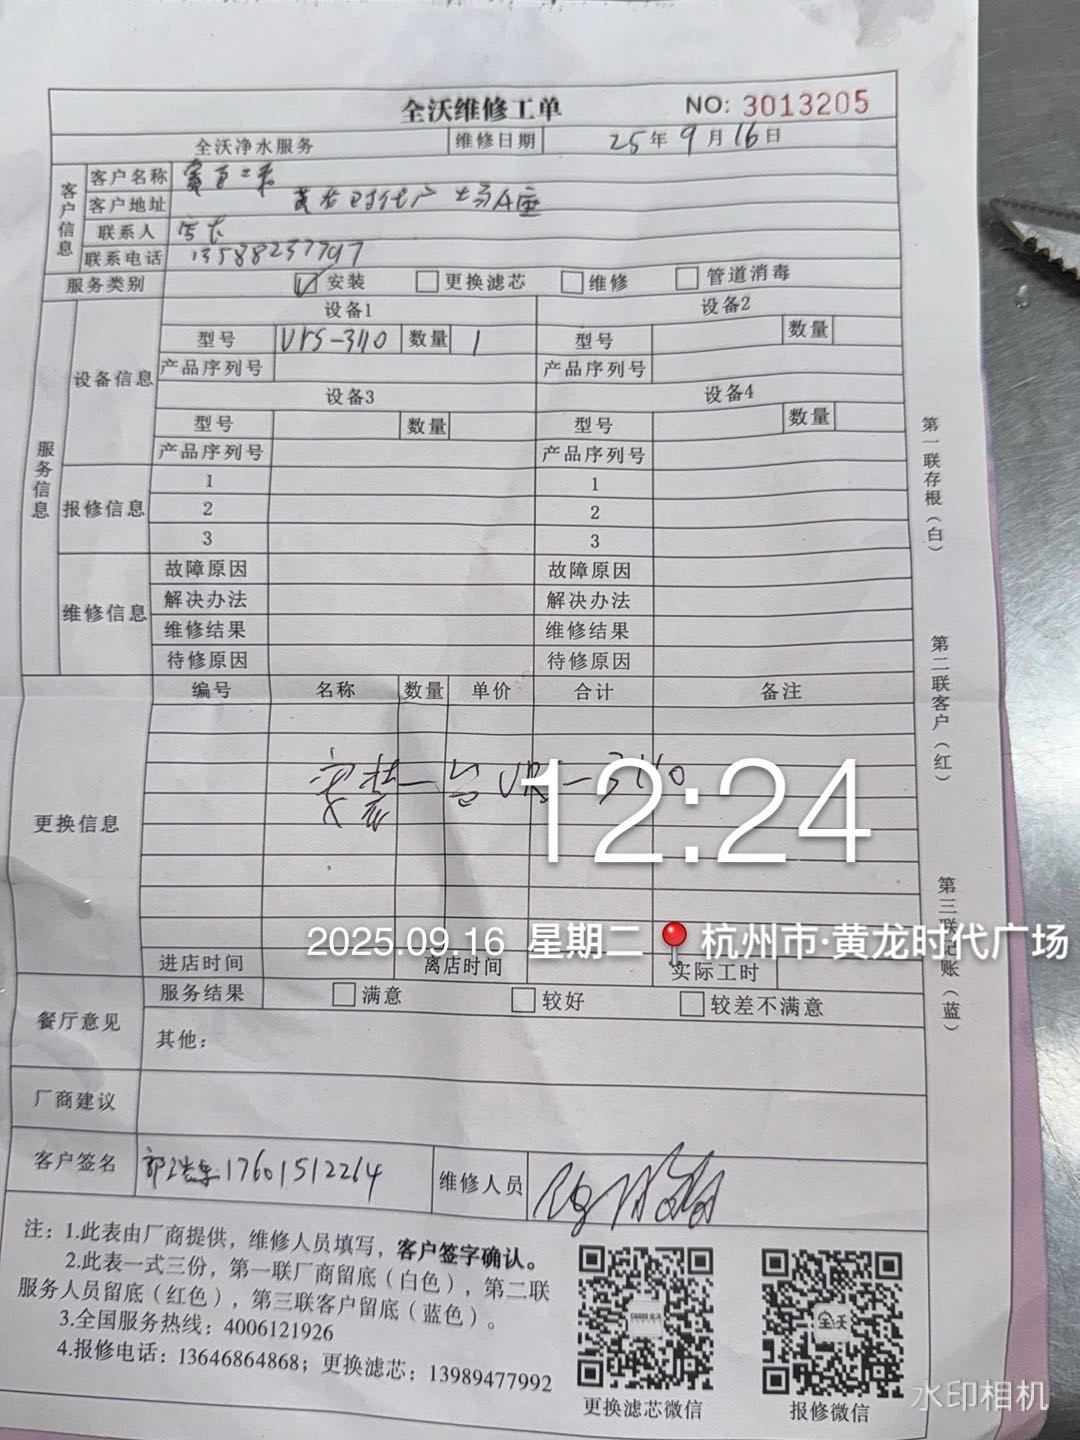 全沃维修工单 NO: 3013205
全沃净水服务 维修日期 25年9月16日
客户信息
客户名称
客户地址 黄龙时代广场A座
联系人 店长
联系电话 13588237797
服务类别 ☑安装 □更换滤芯 □维修 □管道消毒
服务信息
设备信息
设备1 设备2
型号 VRS-3110 数量 1 型号 数量
产品序列号 产品序列号
设备3 设备4
型号 数量 型号 数量
产品序列号 产品序列号
报修信息
1 1
2 2
3 3
维修信息
故障原因 故障原因
解决办法 解决办法
维修结果 维修结果
待修原因 待修原因
更换信息
编号 名称 数量 单价 合计 备注
安装一台VRS-3110
12:24
2025.09.16 星期二 杭州市·黄龙时代广场
进店时间 离店时间 实际工时
餐厅意见
服务结果 □满意 □较好 □较差不满意
其他：
厂商建议
客户签名 17601512264 维修人员
注：1.此表由厂商提供，维修人员填写，客户签字确认。
2.此表一式三份，第一联厂商留底（白色），第二联
服务人员留底（红色），第三联客户留底（蓝色）。
3.全国服务热线：4006121926
4.报修电话：13646864868；更换滤芯：13989477992
更换滤芯微信 报修微信
第一联存根（白）
第二联客户（红）
第三联记账（蓝）
水印相机